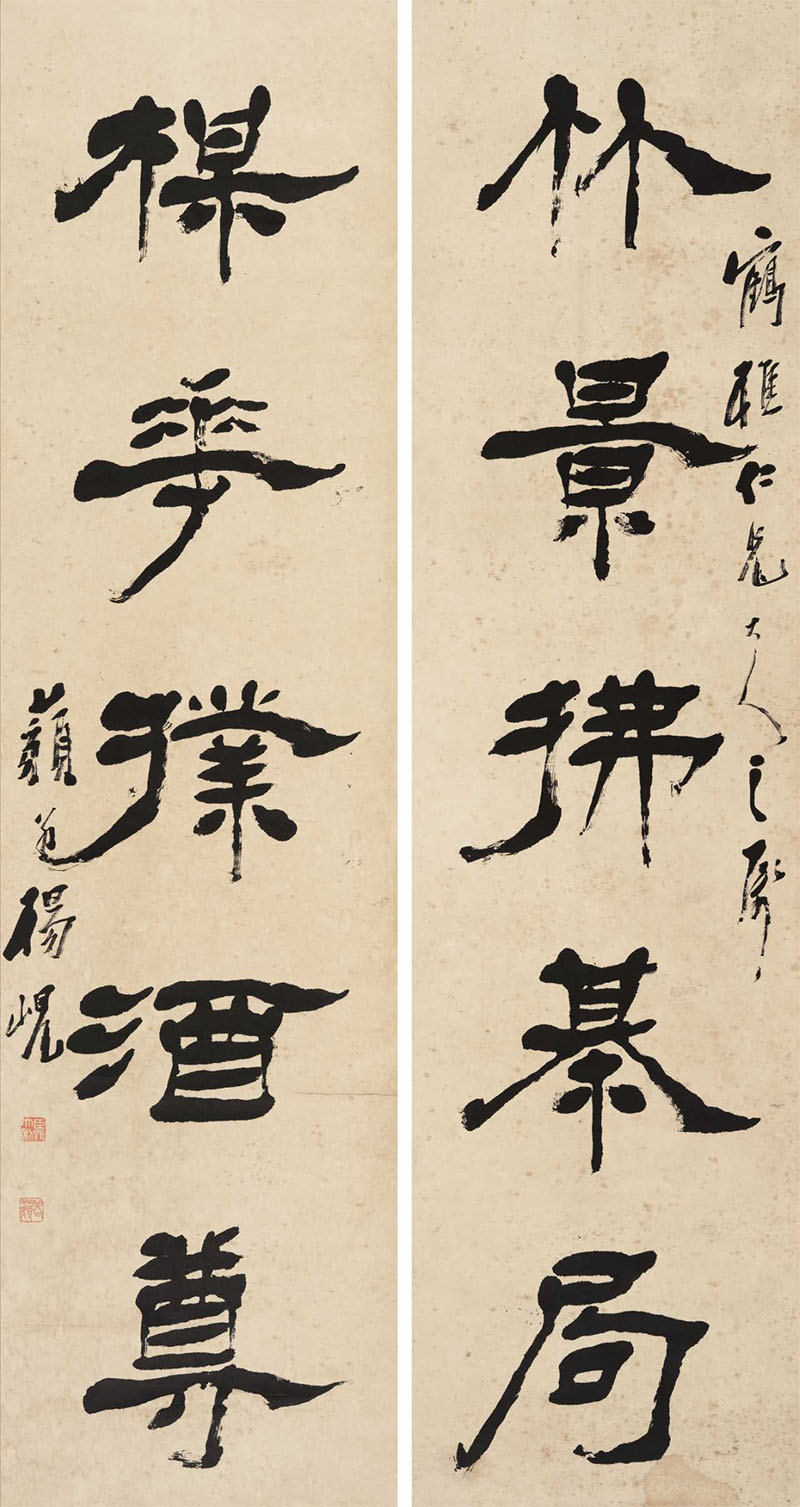 鶴雅仁兄大人之屬
竹景拂棊局
楳華撲酒尊
藐翁楊峴